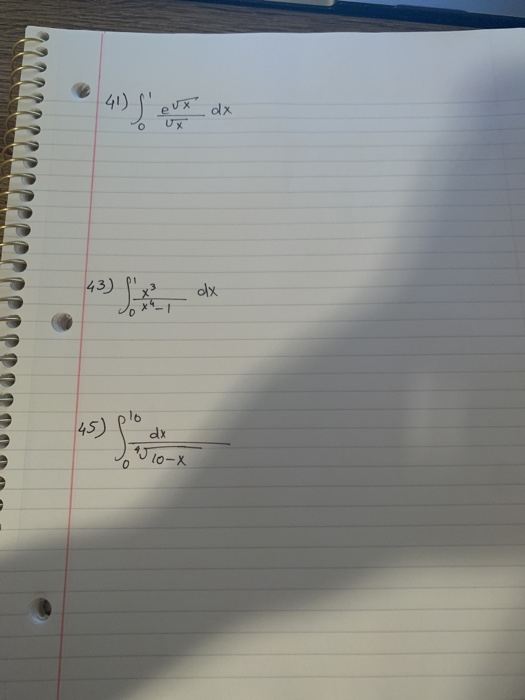 41) ∫₀¹ e^√x / √x dx
43) ∫₀¹ x³ / x⁴-1 dx
45) ∫₀¹⁰ dx / ⁴√10-x